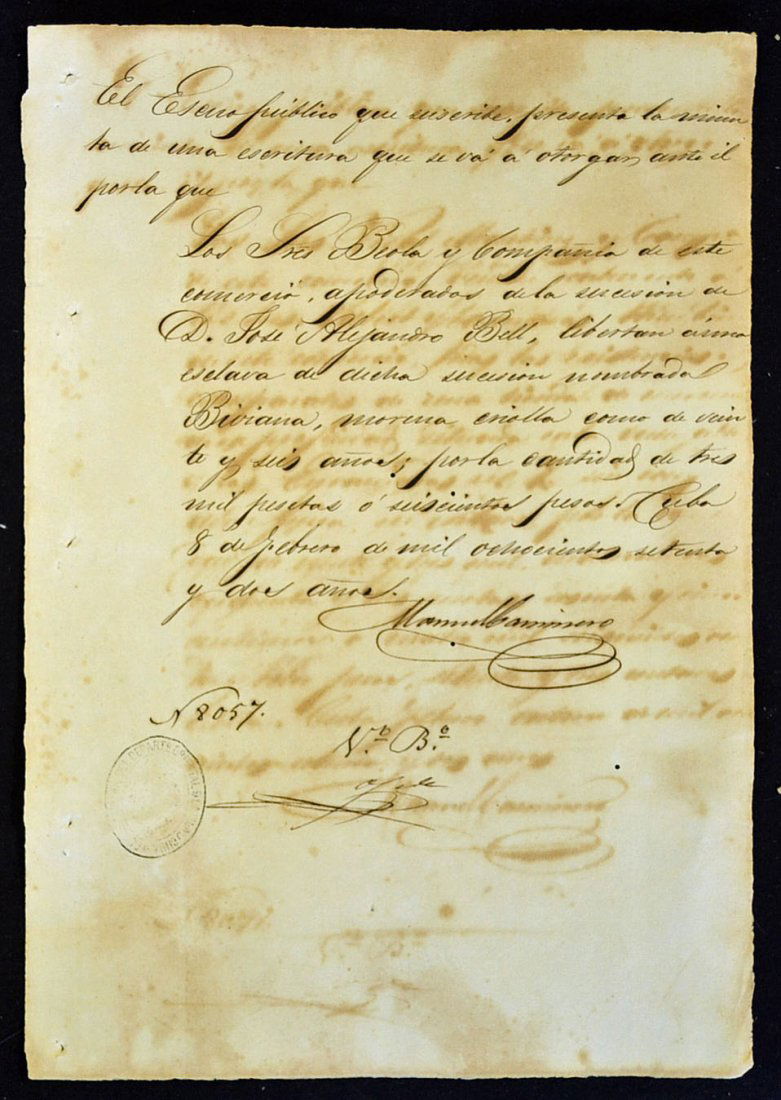 El Escno público que suscribe, presenta la minu
ta de una escritura que se vá á otorgar ante él
por la que
Los Sres Beola y Compañia de este
comercio, apoderados de la sucesion de
D. José Alejandro Bell, libertan á una
esclava de dicha sucesion nombrada
Biviana, morena criolla como de vein
te y seis años; por la cantidad de tres
mil pesetas ó seiscientos pesos. Cuba
8 de febrero de mil ochocientos setenta
y dos años.
Manuel Caminero
N 8057.
V.º B.º